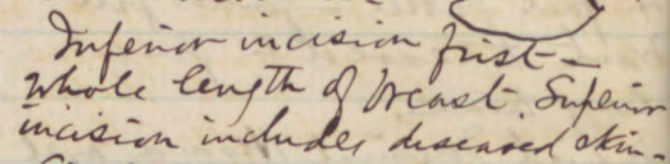 Inferior incision first -
whole length of breast. Superior
incision includes diseased skin -